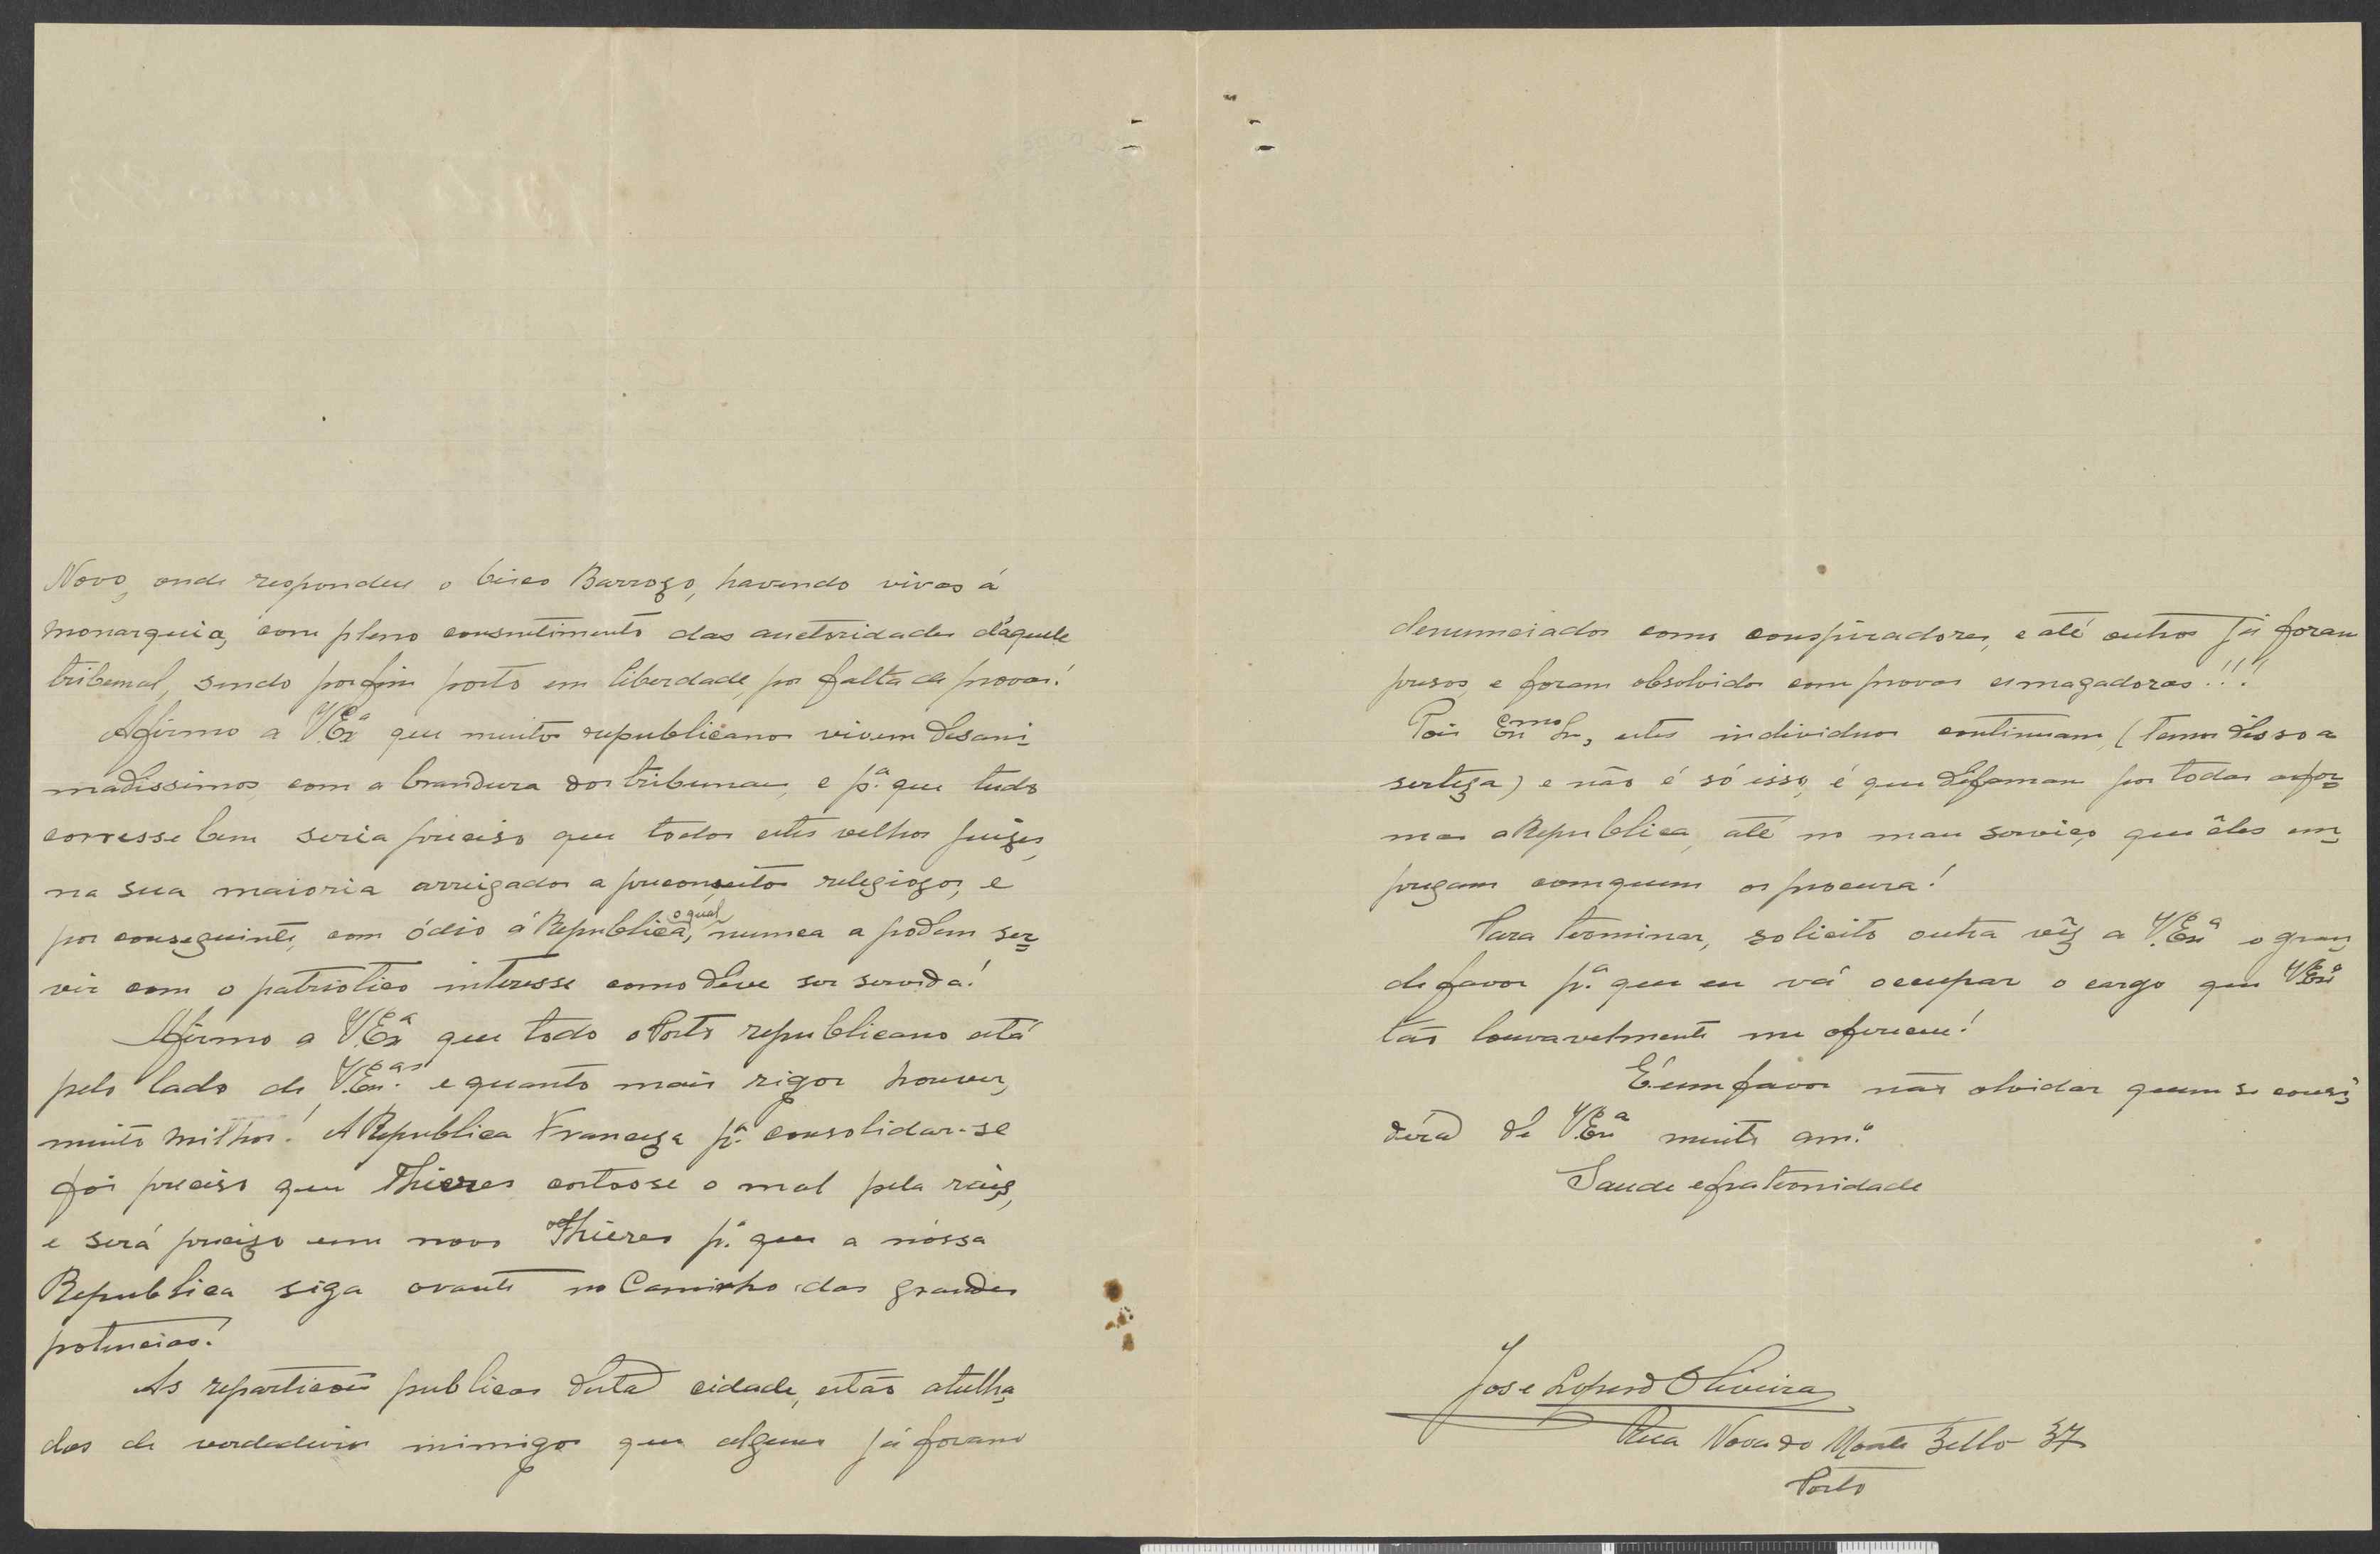 Novo, onde respondeu o bispo Barrozo, havendo vivas á
monarquia, com pleno consentimento das auctoridades d'aquele
tribunal, sendo porfim posto em liberdade, por falta de provas!
Afirmo a V. Exª que muitos republicanos vivem desani-
madissimos, com a brandura dos tribunaes, e pª que tudo
corresse bem seria preciso que todos estes velhos juizes,
na sua maioria arreigados a preconseitos relegiozos, e
por conseguinte, com ódio á Republica, o qual nunca a podem ser-
vir com o patriotico interesse como deve ser servida!
Afirmo a V. Exª que todo o Porto republicano está
pelo lado de V. Exas e quanto mais rigor houver,
muito milhor! A Republica Franceza pª consolidar-se
foi preciso que Thieres cortasse o mal pela raiz,
e será precizo um novo Thieres pª que a nóssa
Republica siga ovante no Caminho das grandes
potencias!
As repartições publicas desta cidade, estão atulha-
das de verdadeiros inimigos que alguns já foram
denunciados como conspiradores, e até outros já foram
presos, e foram absolvidos com provas esmagadoras!!!
Pois Exmo Sr, estes individuos continuam, (temos disso a
serteza) e não é só isso, é que difamam por todas as for-
mas a Republica, até no mau serviço que êles em-
pregam com quem os procura!
Para terminar, solicito outra vêz a V. Exª o gran-
de favor pª que eu vá occupar o cargo que V. Exª
tão louvavelmente me ofereceu!
É um favor não olvidar quem se consi-
déra de V. Exª muito amº
Saude e fraternidade
José Lopes d'Oliveira
Rua Nova do Monte Bello 37
Porto